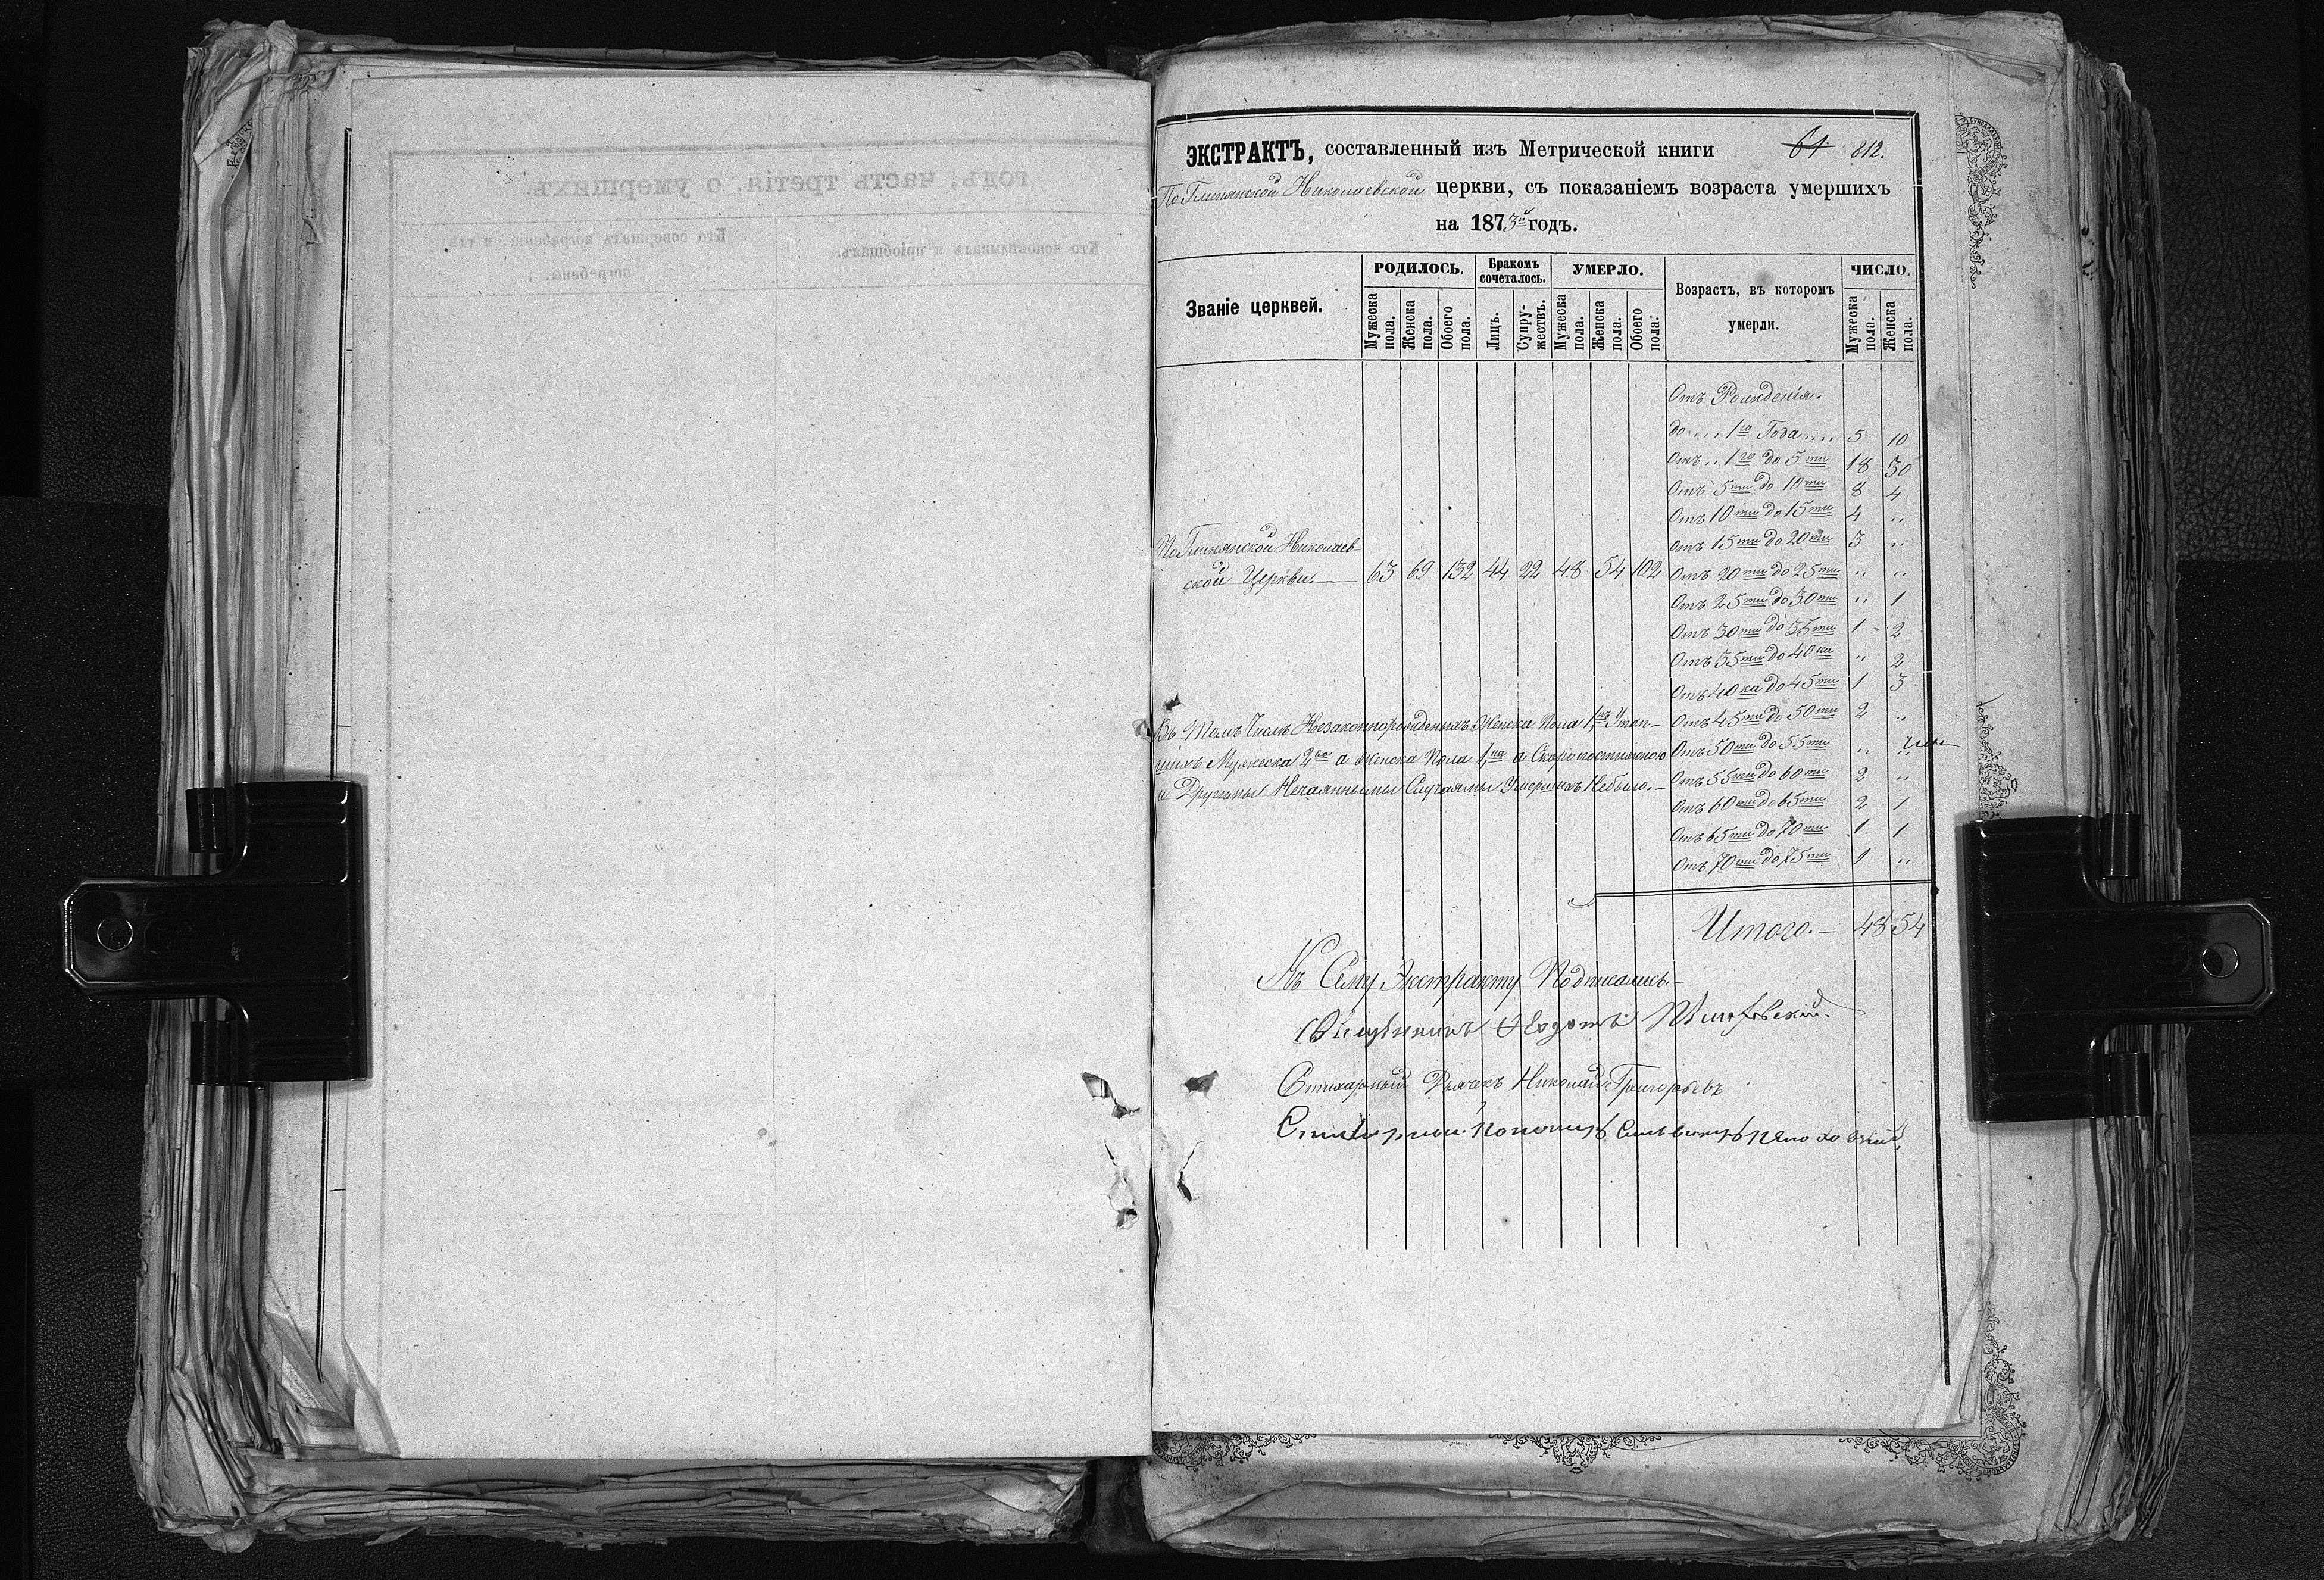 ЭКСТРАКТЪ, составленный изъ Метрической книги 61 812.
По Глинянской Николаевской церкви, съ показаніемъ возраста умершихъ
на 1873й годъ.
Званіе церквей.
РОДИЛОСЬ.
Бракомъ сочеталось.
УМЕРЛО.
Возрастъ, въ которомъ умерли.
ЧИСЛО.
Мужеска пола.
Женска пола.
Обоего пола.
Лицъ.
Супружествъ.
Мужеска пола.
Женска пола.
Обоего пола.
Мужеска пола.
Женска пола.
Отъ Рожденія.
до .... 1го Года .... 5 10
Отъ .. 1го до 5ти 18 30
Отъ 5ти до 10ти 8 4
Отъ 10ти до 15ти 4 "
Отъ 15ти до 20ти 3 "
По Глинянской Николаев-
ской Церкви. 63 69 132 44 22 48 54 102 Отъ 20ти до 25ти " "
Отъ 25ти до 30ти " 1
Отъ 30ти до 35ти 1 2
Отъ 35ти до 40ка " 2
Отъ 40ка до 45ти 1 3
Отъ 45ти до 50ти 2 "
Отъ 50ти до 55ти " "
Отъ 55ти до 60ти 2 "
Отъ 60ти до 65ти 2 1
Отъ 65ти до 70ти 1 1
Отъ 70ти до 75ти 1 "
Въ Томъ Числѣ Незаконнорожденыхъ Женска Пола 1, Утоп-
шихъ Мужеска 2ва а Женска Пола 1на а Скоропостижною
и Другимы Нечаянными Случаямы Умершихъ Небыло.
Итого. 48 54
Къ Сему Экстракту Подписались.
Священникъ Федотъ
Стихарный Дьячекъ Николай Григорьевъ
Стихарный Пономарь
годъ, часть третія, о умершихъ.
Кто исповѣдывалъ и пріобщалъ.
Кто совершалъ погребеніе и гдѣ
погребены.